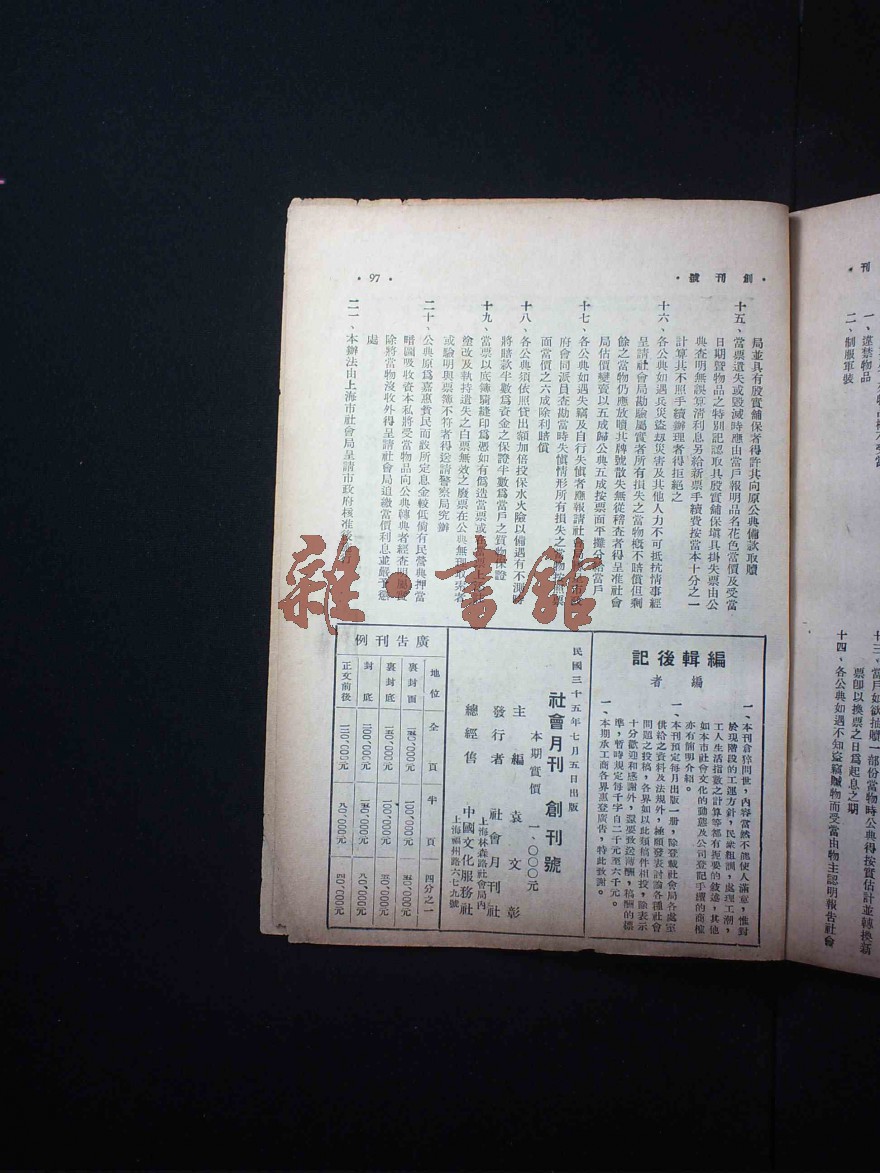 創刊號
97
局並具有殷實舖保者得許其向原公典備款取贖
十五、當票遺失或毀滅時應由當戶報明品名花色當價及受當
日期暨物品之特別記認取具殷實舖保塡具掛失票由公
典查明無誤算清利息另給新票手續費按當本十分之一
計算其不照手續辦理者得拒絕之
十六、各公典如遇兵災盜刼災害及其他人力不可抵抗情事經
呈請社會局勘驗屬實者所有損失之當物概不賠償但剩
餘之當物仍應放贖其牌號散失無從稽查者得呈准社會
局估價變賣以五成歸公典五成按票面平攤分給當戶
十七、各公典如遇失竊及自行失愼者應報請社會
府會同派員查勘當時失愼情形所有損失之當物
面當價之六成除利賠償
十八、各公典須依照貸出額加倍投保水火險以備遇有不測時
將賠款半數爲資金之保證半數爲當戶之質物保證
十九、當票以底簿騎縫印爲憑如有僞造當票或
塗改及執持遺失之白票無效之廢票在公典無理取鬧者
或驗明與票簿不符者得送請警察局究辦
二十、公典原爲嘉惠貧民而設所定息金較低倘有民營典押當
暗圖吸收資本私將受當物品向公典轉典者經查明屬實
除將當物沒收外得呈請社會局追繳當價利息並嚴予懲
處
二一、本辦法由上海市社會局呈請市政府核准後
編輯後記
編者
一、本刊倉猝問世，內容當然不能使人滿意，惟對
於現階段的工運方針，民衆組訓，處理工潮，
工人生活指數之計算等都有扼要的敘述，其他
如本市社會文化的動態及公司登記手續的商榷
亦有簡明介紹。
一、本刊預定每月出版一册，除登載社會局各處室
供給之資料及法規外，極願發表討論各種社會
問題之投稿，各界如以此類稿件相投，除表示
十分歡迎和感謝外，還要致送薄酬，稿酬的標
準，暫時規定每千字自二千元至六千元。
一、本期承工商各界惠登廣告，特此致謝。
民國三十五年七月五日出版
社會月刊 創刊號
本期實價 一、〇〇〇元
主編 袁文彰
發行者 社會月刊社
上海林森路社會局內
總經售 中國文化服務社
上海福州路六七九號
廣告刊例
地位 全頁 半頁 四分之一
裏封面 100,000元
裏封底 100,000元
封底
正文前後 80,000元 40,000元
刊
一、違禁物品
二、制服軍裝
十三、當戶如欲抽贖一部份當物時公典得按實估計並轉換新
票卽以換票之日爲起息之期
十四、各公典如遇不知盜竊贓物而受當由物主認明報告社會
雜·書館